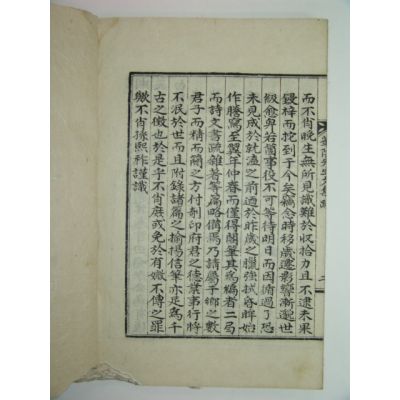 而不肖晩生無所見識難於收拾力且不逮未果
鋟梓而挖到于今矣竊念時移歲遷影響漸邈世
級愈卑若圖事役不可等待明日而因循過了恐
未見成於就溘之前迺於昨歲之臘强拭昏眸始
作謄寫至翌年仲春而僅得閣筆其爲編者二局
而詩文書疏雜著等篇略備焉乃請屬于鄕之數
君子而精而簡之方付剞印府君之德業事行將
不泯於世而且附錄諸篇之揄揚信筆亦足爲千
古之徵也於是乎不肖庶或免於有媺不傳之罪
歟不肖孫熙祚謹識